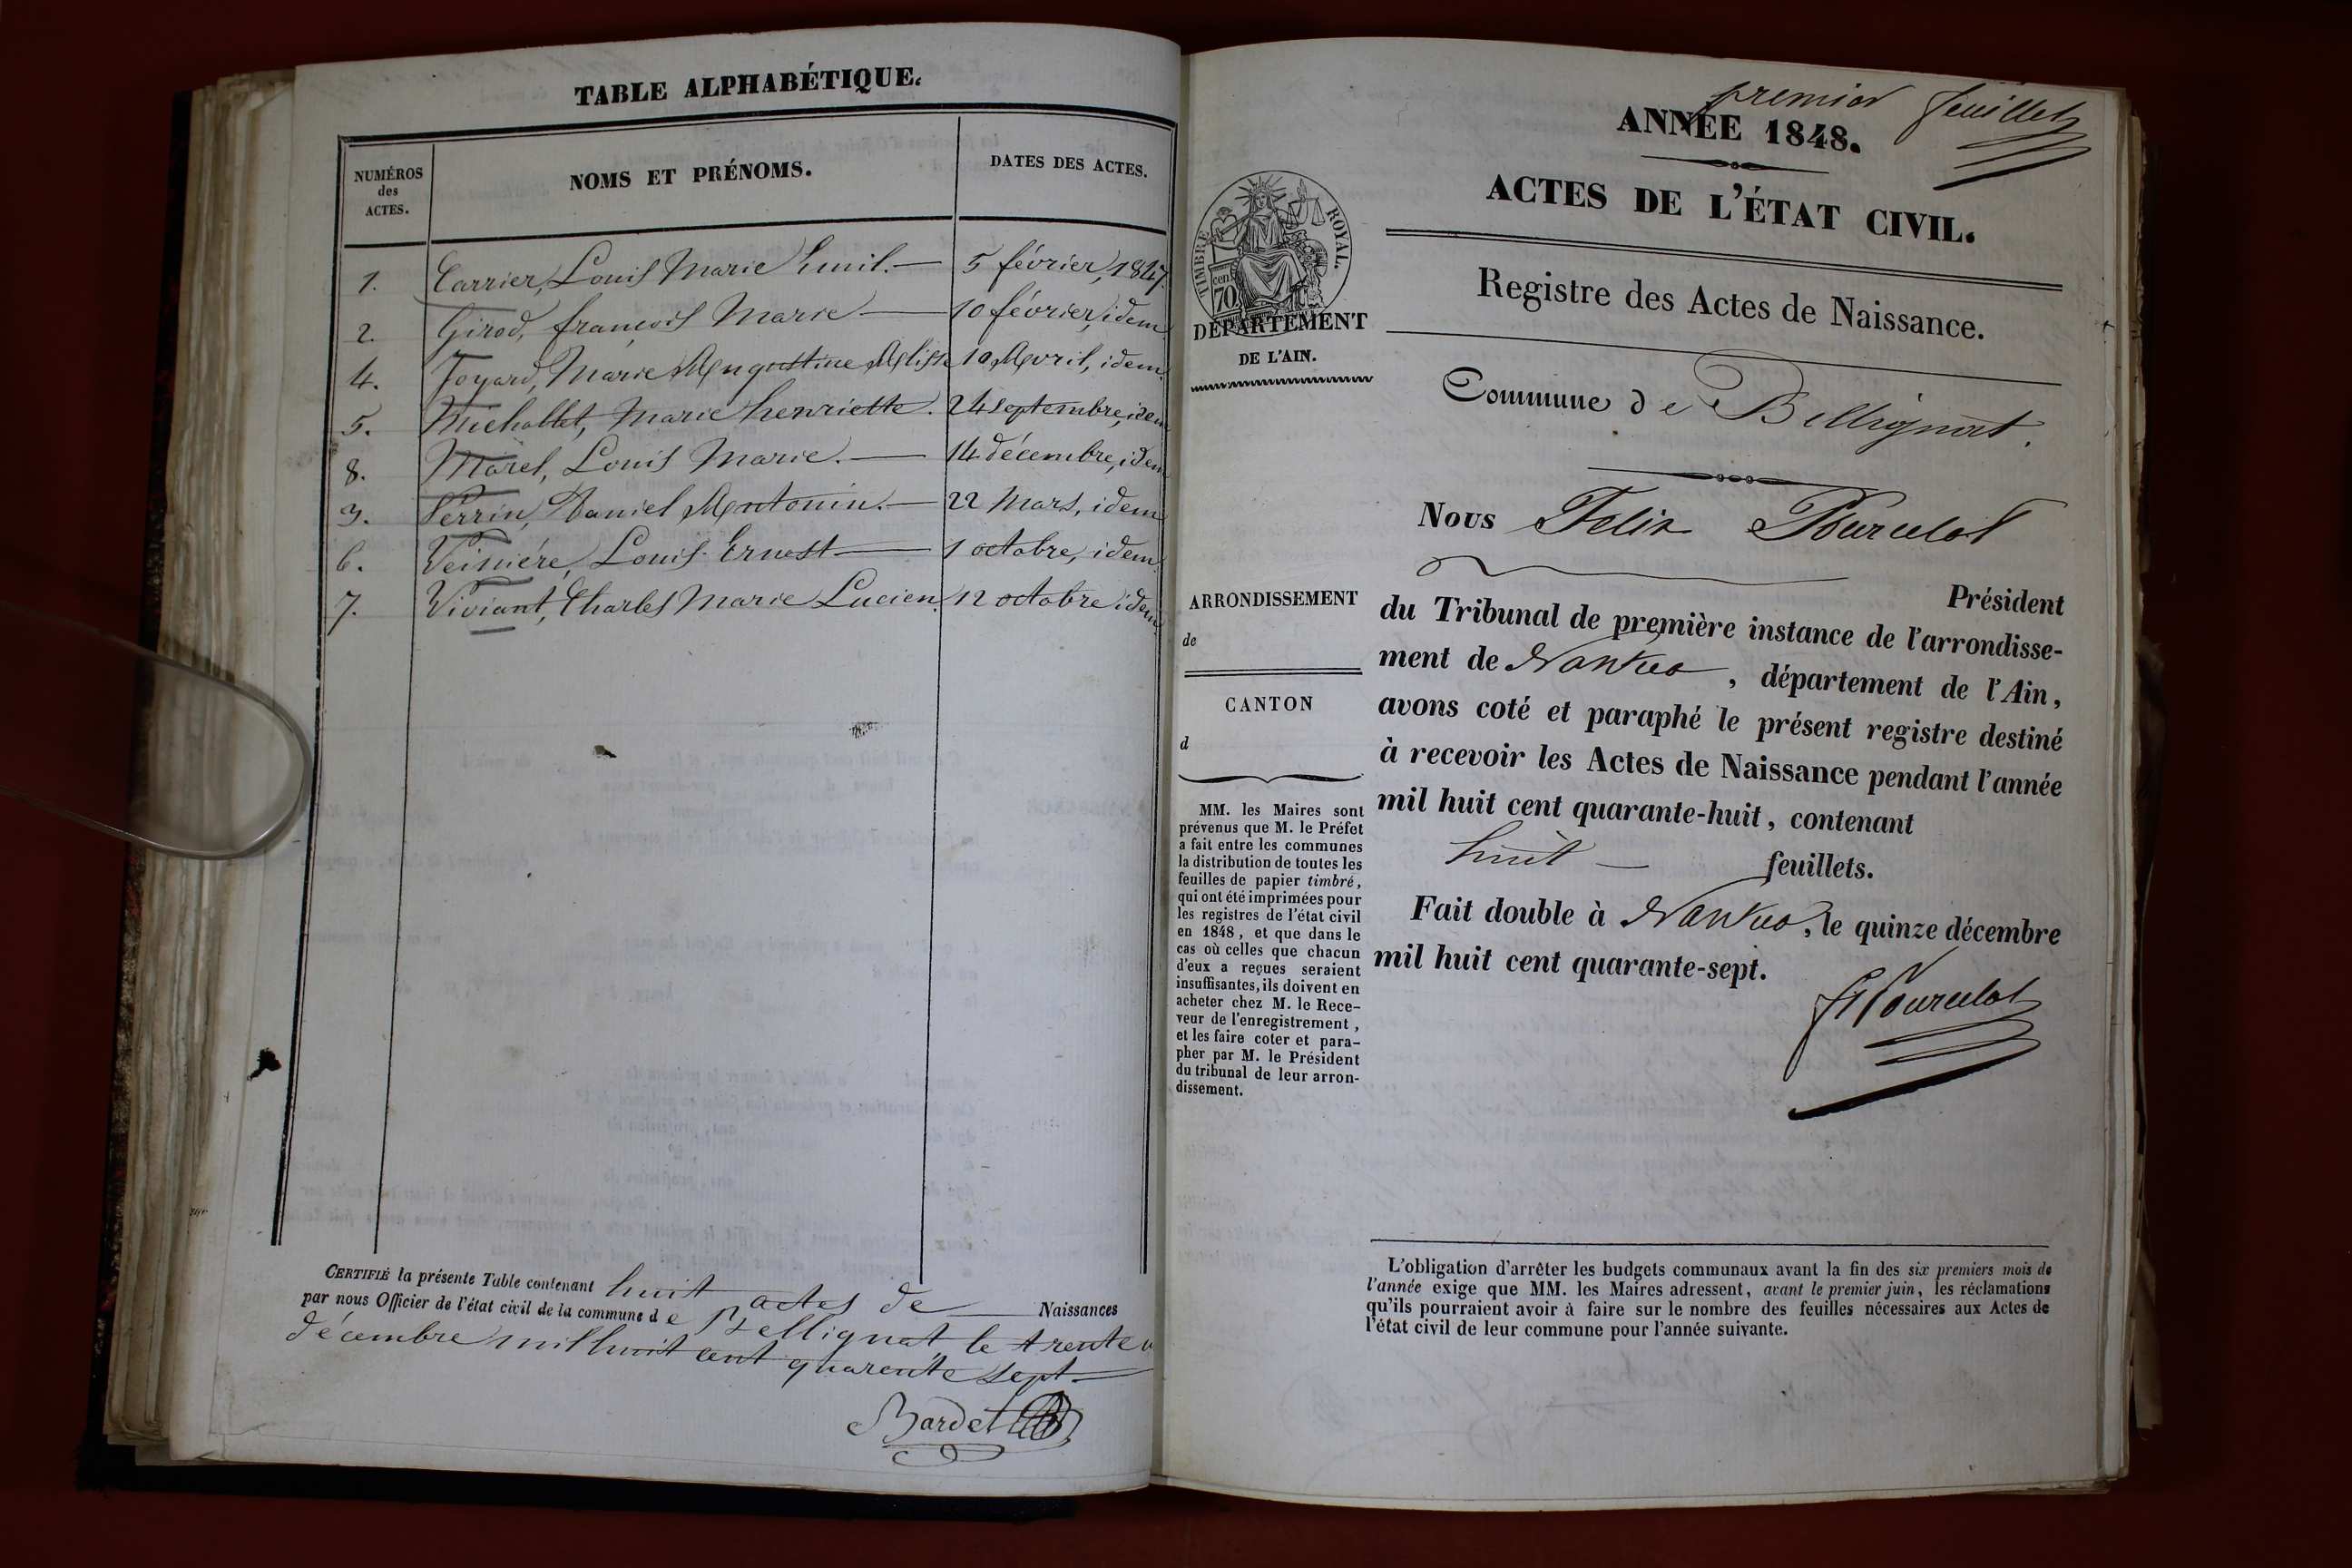 TABLE ALPHABÉTIQUE.
NUMÉROS
des
ACTES.
NOMS ET PRÉNOMS.
DATES DES ACTES.
1. Carrier, Louis Marie Emil. — 5 février, 1847.
2. Girod, françois Marie — 10 février, idem
4. Joyard, Marie Augustine Alisse 10 Avril, idem.
5. Michallet, Marie henriette. 24 septembre, idem
8. Marel, Louis Marie. — 14 décembre, idem
3. Perrin, Daniel Antonin. — 22 Mars, idem
6. Veiniére, Louis Ernest — 1 octobre, idem.
7. Viviant, Charles Marie Lucien. 12 octobre idem
CERTIFIÉ la présente Table contenant huit actes de Naissances
par nous Officier de l'état civil de la commune de Bellignat, le trente
décembre mil huit cent quarente sept.
Bardet
premier feuillet
ANNÉE 1848.
ACTES DE L'ÉTAT CIVIL.
Registre des Actes de Naissance.
TIMBRE ROYAL.
cen
70.
DÉPARTEMENT
DE L'AIN.
Commune de Bellignat.
Nous Felix Pourcelot
Président
du Tribunal de première instance de l'arrondisse-
ment de Nantua, département de l'Ain,
avons coté et paraphé le présent registre destiné
à recevoir les Actes de Naissance pendant l'année
mil huit cent quarante-huit, contenant
huit — feuillets.
Fait double à Nantua, le quinze décembre
mil huit cent quarante-sept.
Pourcelot
ARRONDISSEMENT
de
CANTON
d
MM. les Maires sont
prévenus que M. le Préfet
a fait entre les communes
la distribution de toutes les
feuilles de papier timbré,
qui ont été imprimées pour
les registres de l'état civil
en 1848, et que dans le
cas où celles que chacun
d'eux a reçues seraient
insuffisantes, ils doivent en
acheter chez M. le Rece-
veur de l'enregistrement,
et les faire coter et para-
pher par M. le Président
du tribunal de leur arron-
dissement.
L'obligation d'arrêter les budgets communaux avant la fin des six premiers mois de
l'année exige que MM. les Maires adressent, avant le premier juin, les réclamations
qu'ils pourraient avoir à faire sur le nombre des feuilles nécessaires aux Actes de
l'état civil de leur commune pour l'année suivante.